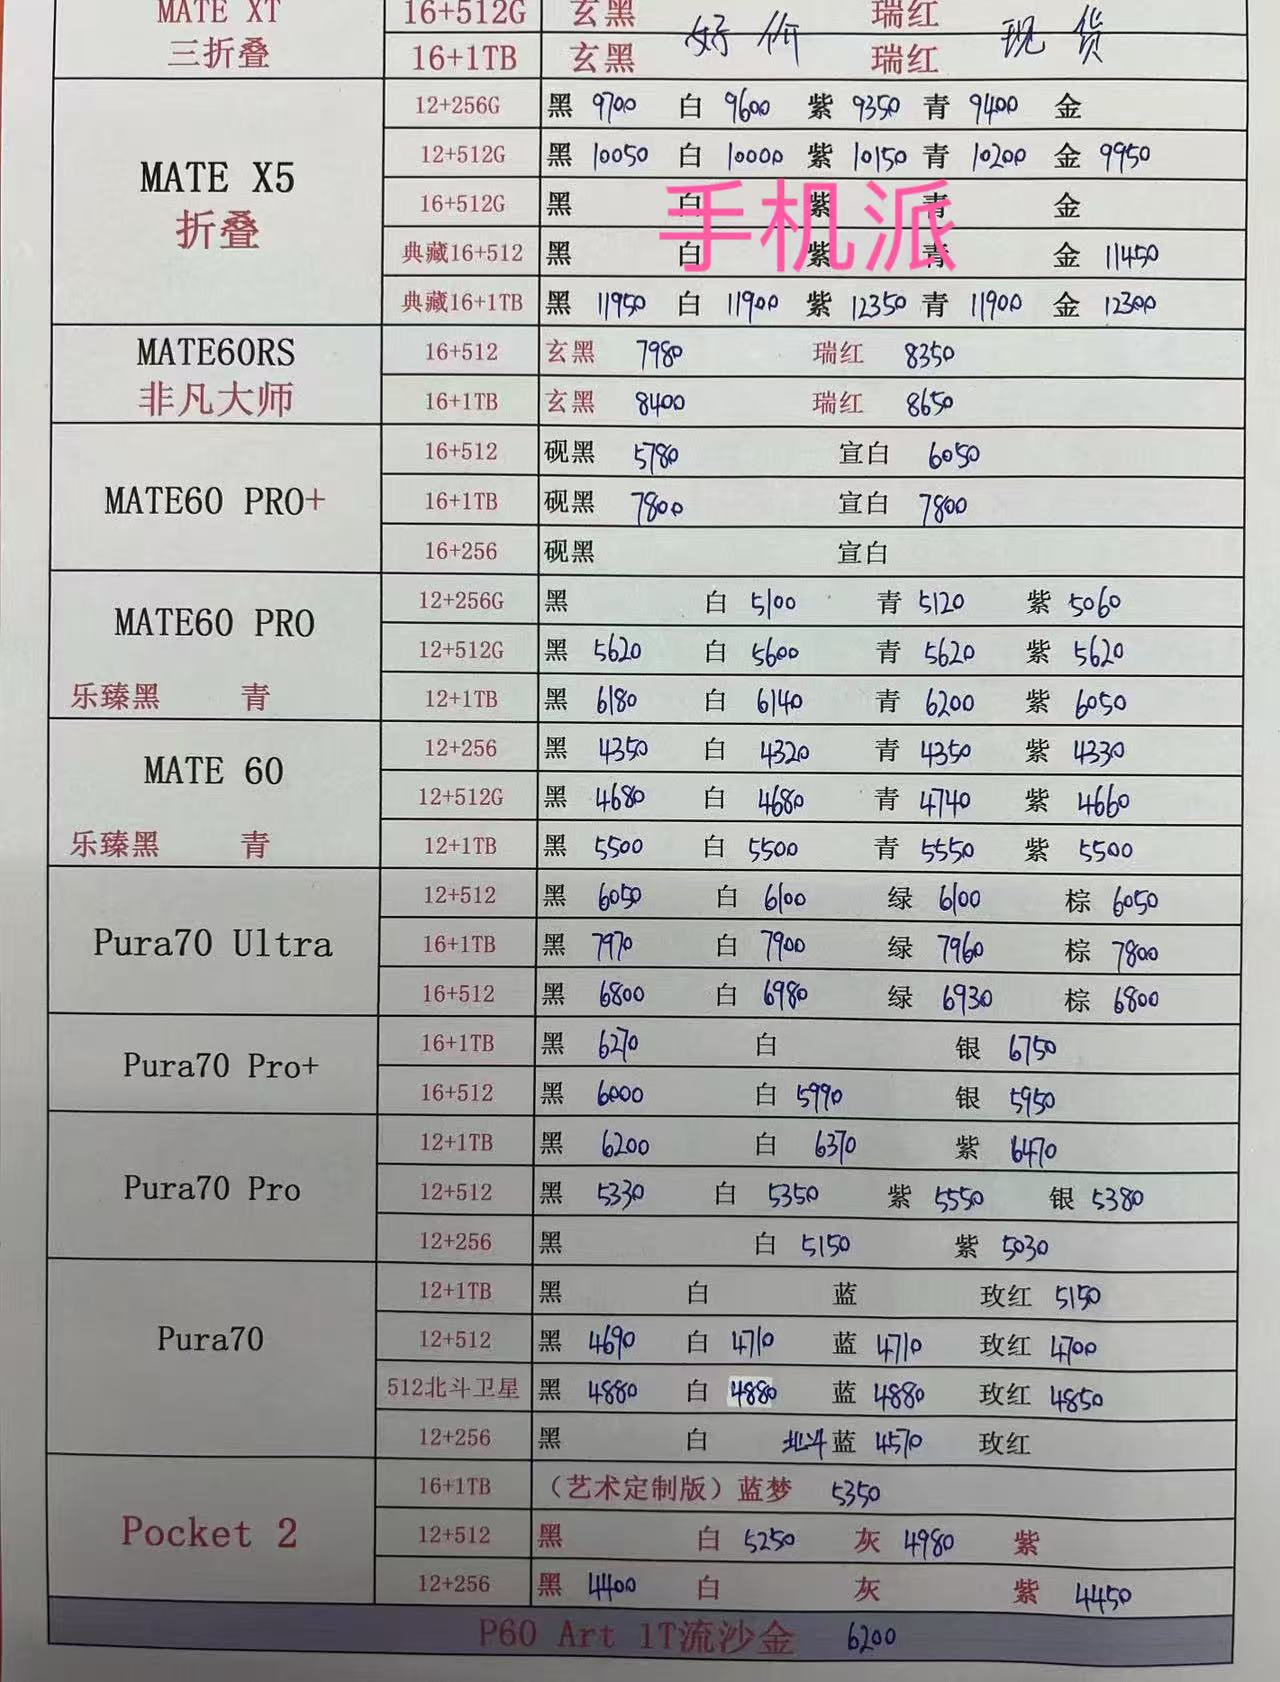 MATE XT 16+512G 玄黑 瑞红
好价 现货
三折叠 16+1TB 玄黑 瑞红
12+256G 黑 9700 白 9600 紫 9350 青 9400 金
MATE X5 12+512G 黑 10050 白 10000 紫 10150 青 10200 金 9950
折叠 16+512G 黑 白 紫 青 金
手机派
典藏16+512 黑 白 紫 青 金 11450
典藏16+1TB 黑 11950 白 11900 紫 12350 青 11900 金 12300
MATE60RS 16+512 玄黑 7980 瑞红 8350
非凡大师 16+1TB 玄黑 8400 瑞红 8650
16+512 砚黑 5780 宣白 6050
MATE60 PRO+ 16+1TB 砚黑 7800 宣白 7800
16+256 砚黑 宣白
MATE60 PRO 12+256G 黑 白 5100 青 5120 紫 5060
12+512G 黑 5620 白 5600 青 5620 紫 5620
乐臻黑 青 12+1TB 黑 6180 白 6140 青 6200 紫 6050
MATE 60 12+256 黑 4350 白 4320 青 4350 紫 4330
12+512G 黑 4680 白 4680 青 4740 紫 4660
乐臻黑 青 12+1TB 黑 5500 白 5500 青 5550 紫 5500
12+512 黑 6050 白 6100 绿 6100 棕 6050
Pura70 Ultra 16+1TB 黑 7970 白 7900 绿 7960 棕 7800
16+512 黑 6800 白 6980 绿 6930 棕 6800
Pura70 Pro+ 16+1TB 黑 6270 白 银 6750
16+512 黑 6000 白 5990 银 5950
12+1TB 黑 6200 白 6370 紫 6470
Pura70 Pro 12+512 黑 5330 白 5350 紫 5550 银 5380
12+256 黑 白 5150 紫 5030
12+1TB 黑 白 蓝 玫红 5150
Pura70 12+512 黑 4690 白 4710 蓝 4710 玫红 4700
512北斗卫星 黑 4880 白 4880 蓝 4880 玫红 4850
12+256 黑 白 北斗 蓝 4570 玫红
16+1TB （艺术定制版）蓝梦 5350
Pocket 2 12+512 黑 白 5250 灰 4980 紫
12+256 黑 4400 白 灰 紫 4450
P60 Art 1T流沙金 6200